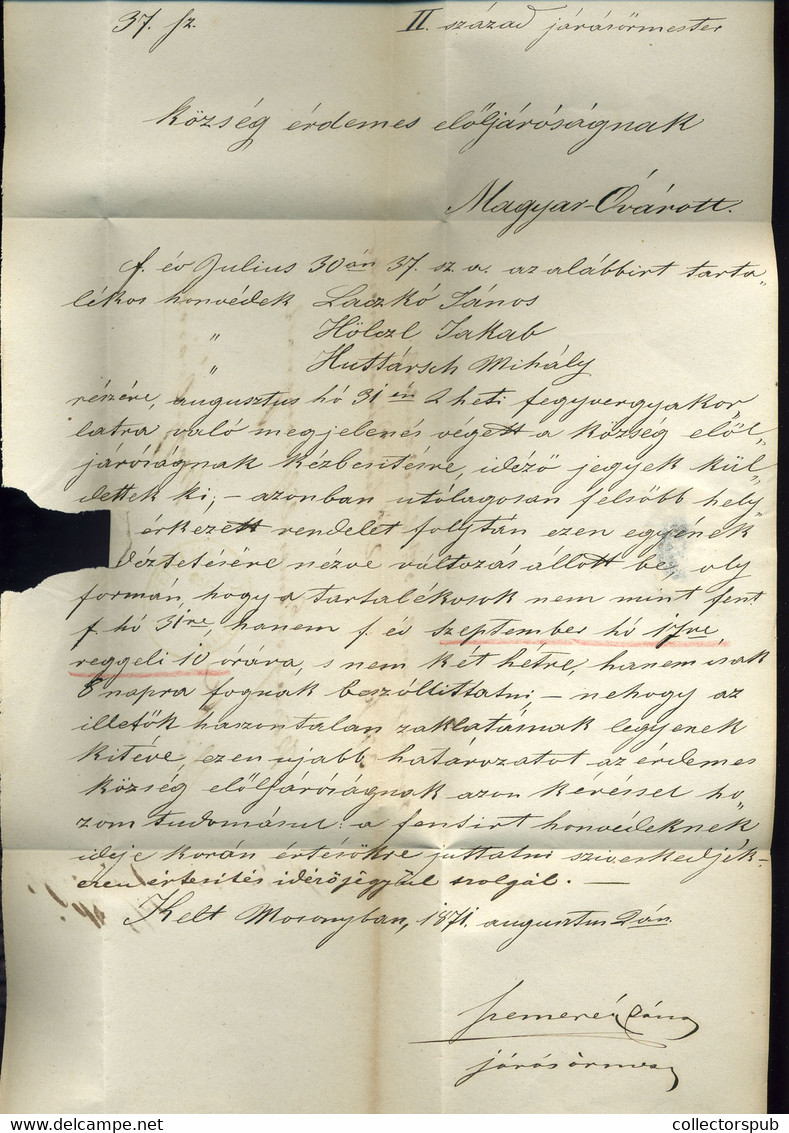 37. sz. II. század járásörmester
Község érdemes elöljáróságnak
Magyar-Óvárott.
f. év Julius 30án 37. sz. a. az alábbirt tarta„
lékos honvédek Laczkó János
„ Hölczl Jakab
„ Huttársch Mihály
részére, augusztus hó 31én 2 heti fegyvergyakor„
latra való megjelenés végett a község elöl„
járóságnak kézbesitésre, idéző jegyek kül„
dettek ki; – azonban utólagosan felsőbb hely„
érkezett rendelet folytán ezen egyének
déztetésére nézve változás állott be, oly
formán, hogy a tartalékosok nem mint fent
f. hó 31re, hanem f. év szeptember hó 17re,
reggeli 10 órára, s nem két hétre, hanem csak
8 napra fognak beszólittatni – nehogy az
illetők haszontalan zaklatásnak legyenek
kitéve, ezen ujabb határozatot az érdemes
község elöljáróságnak azon kéréssel ho„
zom tudomásul: a fensirt honvédeknek
ideje korán értésökre juttatni sziveskedjék –
ezen értesités idézőjegyül szolgál. —
Kelt Mosonyban, 1871. augusztus 2án.
járásörmes
collectorspub